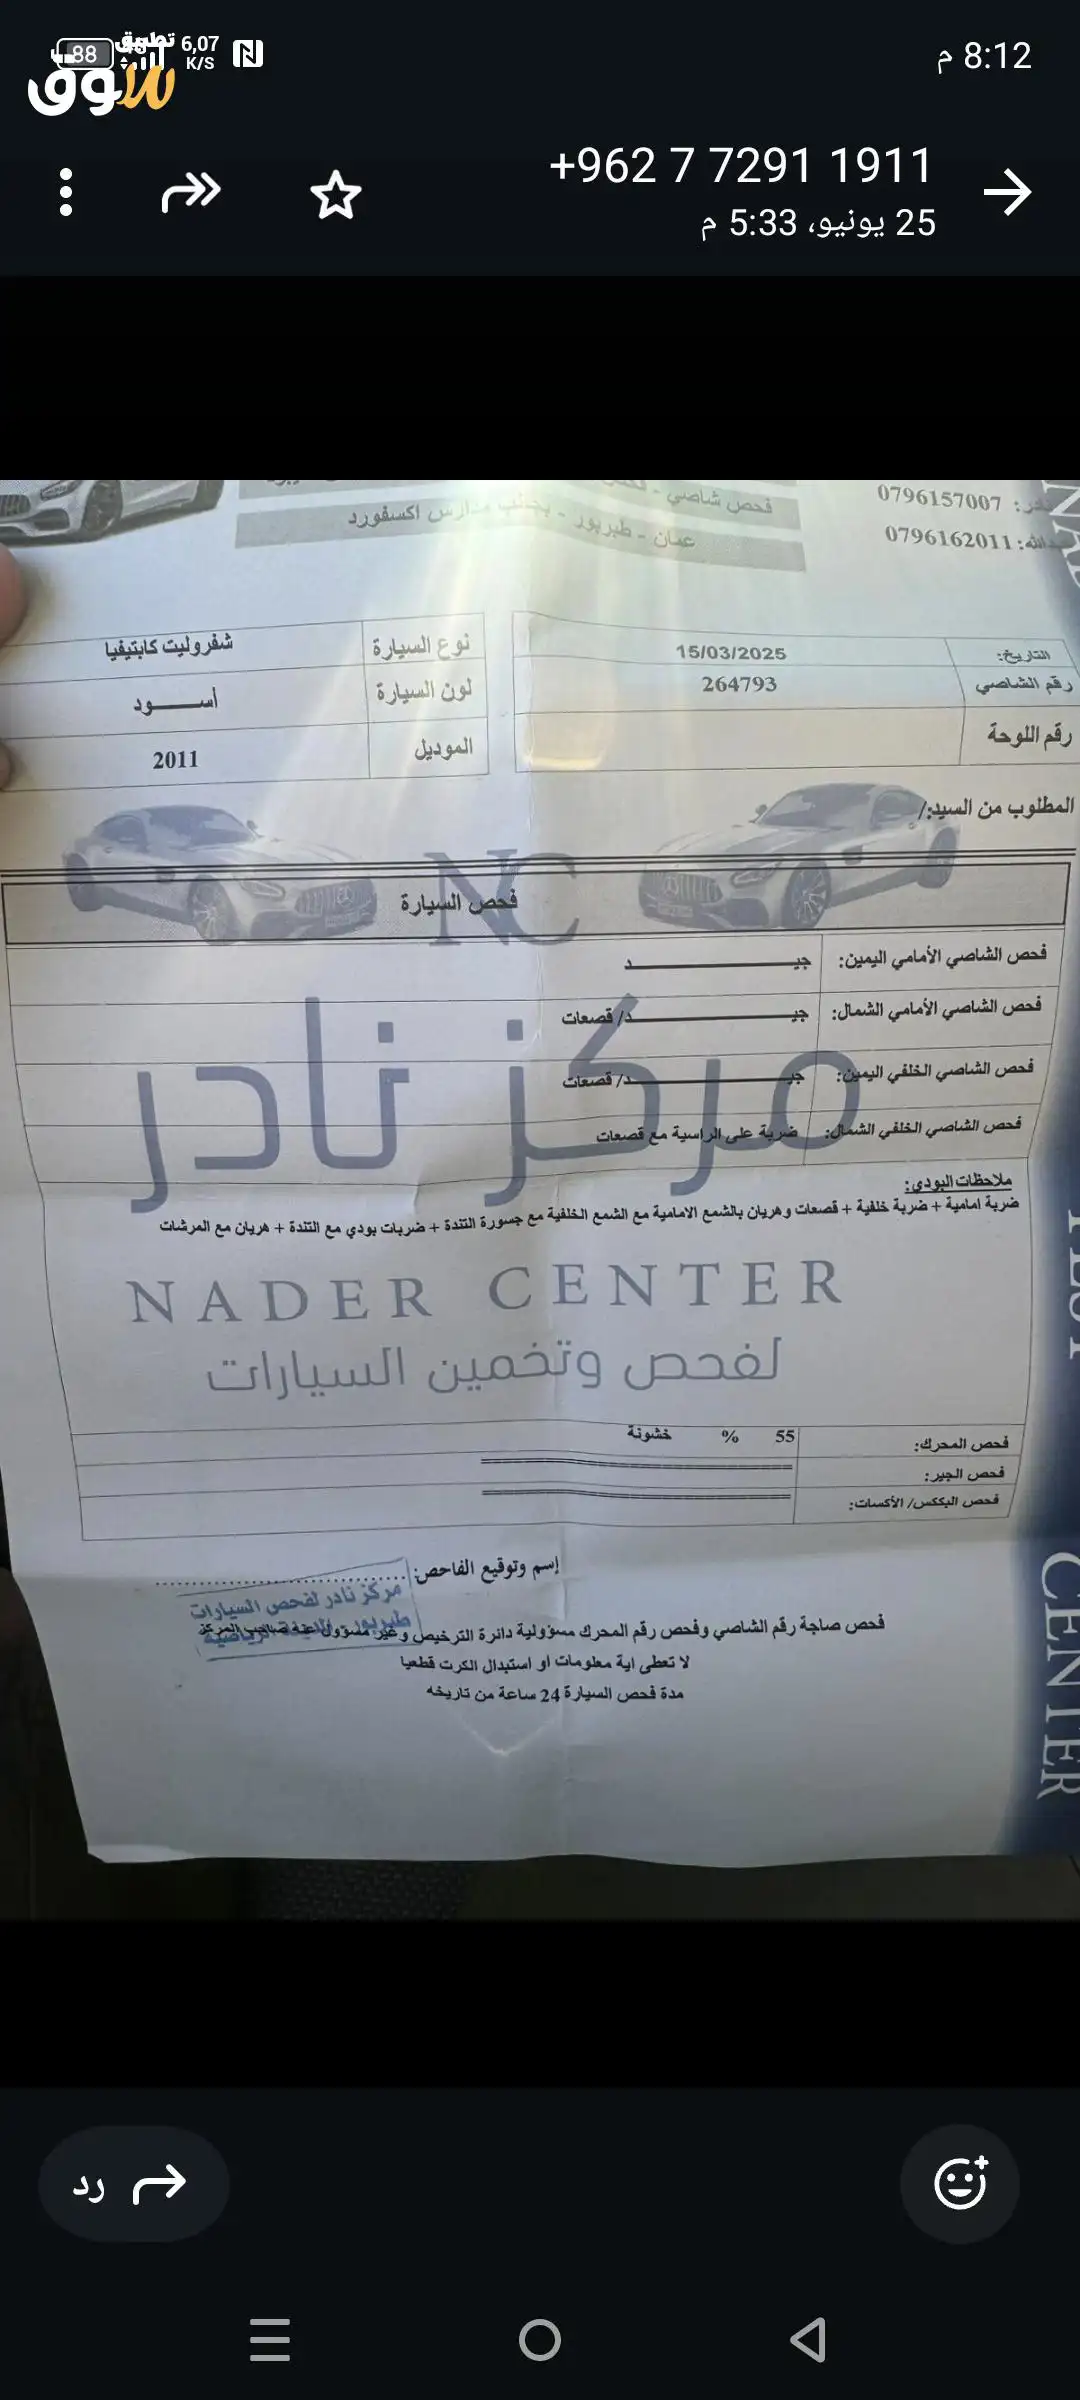 8:12 م
6,07 K/S
88
تطبيق
سوق
+962 7 7291 1911
25 يونيو، 5:33 م
فحص شاصي -
عمان - طبربور - بجانب مدارس اكسفورد
0796157007
0796162011
التاريخ: 15/03/2025
رقم الشاصي 264793
رقم اللوحة
نوع السيارة شفروليت كابتيفيا
لون السيارة أســــود
الموديل 2011
المطلوب من السيد:/
NC
فحص السيارة
فحص الشاصي الأمامي اليمين: جيــــــــد
فحص الشاصي الأمامي الشمال: جيــــــــد/ قصعات
فحص الشاصي الخلفي اليمين: جيــــــــد/ قصعات
فحص الشاصي الخلفي الشمال: ضربة على الراسية مع قصعات
مركز نادر
ملاحظات البودي:
ضربة امامية + ضربة خلفية + قصعات وهريان بالشمع الامامية مع الشمع الخلفية مع جسورة التندة + ضربات بودي مع التندة + هريان مع المرشات
NADER CENTER
لفحص وتخمين السيارات
فحص المحرك: 55 % خشونة
فحص الجير:
فحص البكس/ الأكسات:
إسم وتوقيع الفاحص:
مركز نادر لفحص السيارات
طبربور
فحص صاجة رقم الشاصي وفحص رقم المحرك مسؤولية دائرة الترخيص وغير مسؤول عنة صاحب المركز
لا تعطى اية معلومات او استبدال الكرت قطعيا
مدة فحص السيارة 24 ساعة من تاريخه
CENTER
رد